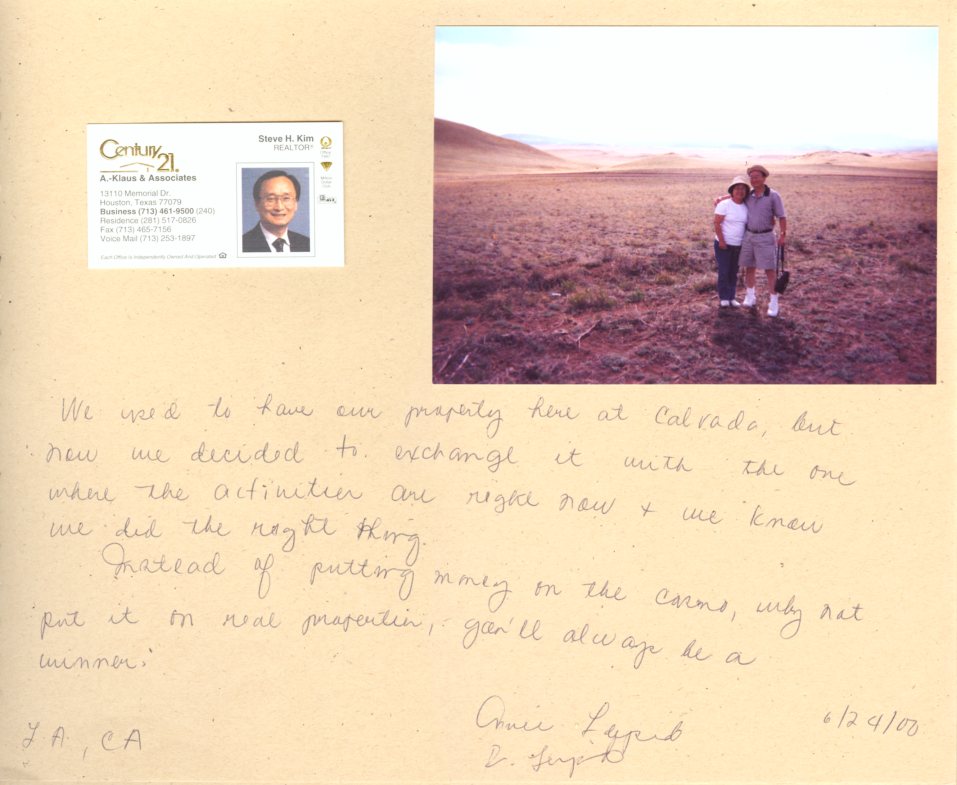 Century 21®
A.-Klaus & Associates
13110 Memorial Dr.
Houston, Texas 77079
Business (713) 461-9500 (240)
Residence (281) 517-0826
Fax (713) 465-7156
Voice Mail (713) 253-1897
Each Office is Independently Owned And Operated
Steve H. Kim
REALTOR®
We used to have our property here at Calvada, but
now we decided to exchange it with the one
where the activities are right now + we know
we did the right thing.
Instead of putting money on the casino, why not
put it on real properties, you'll always be a
winner.
Annie
6/24/00
LA, CA